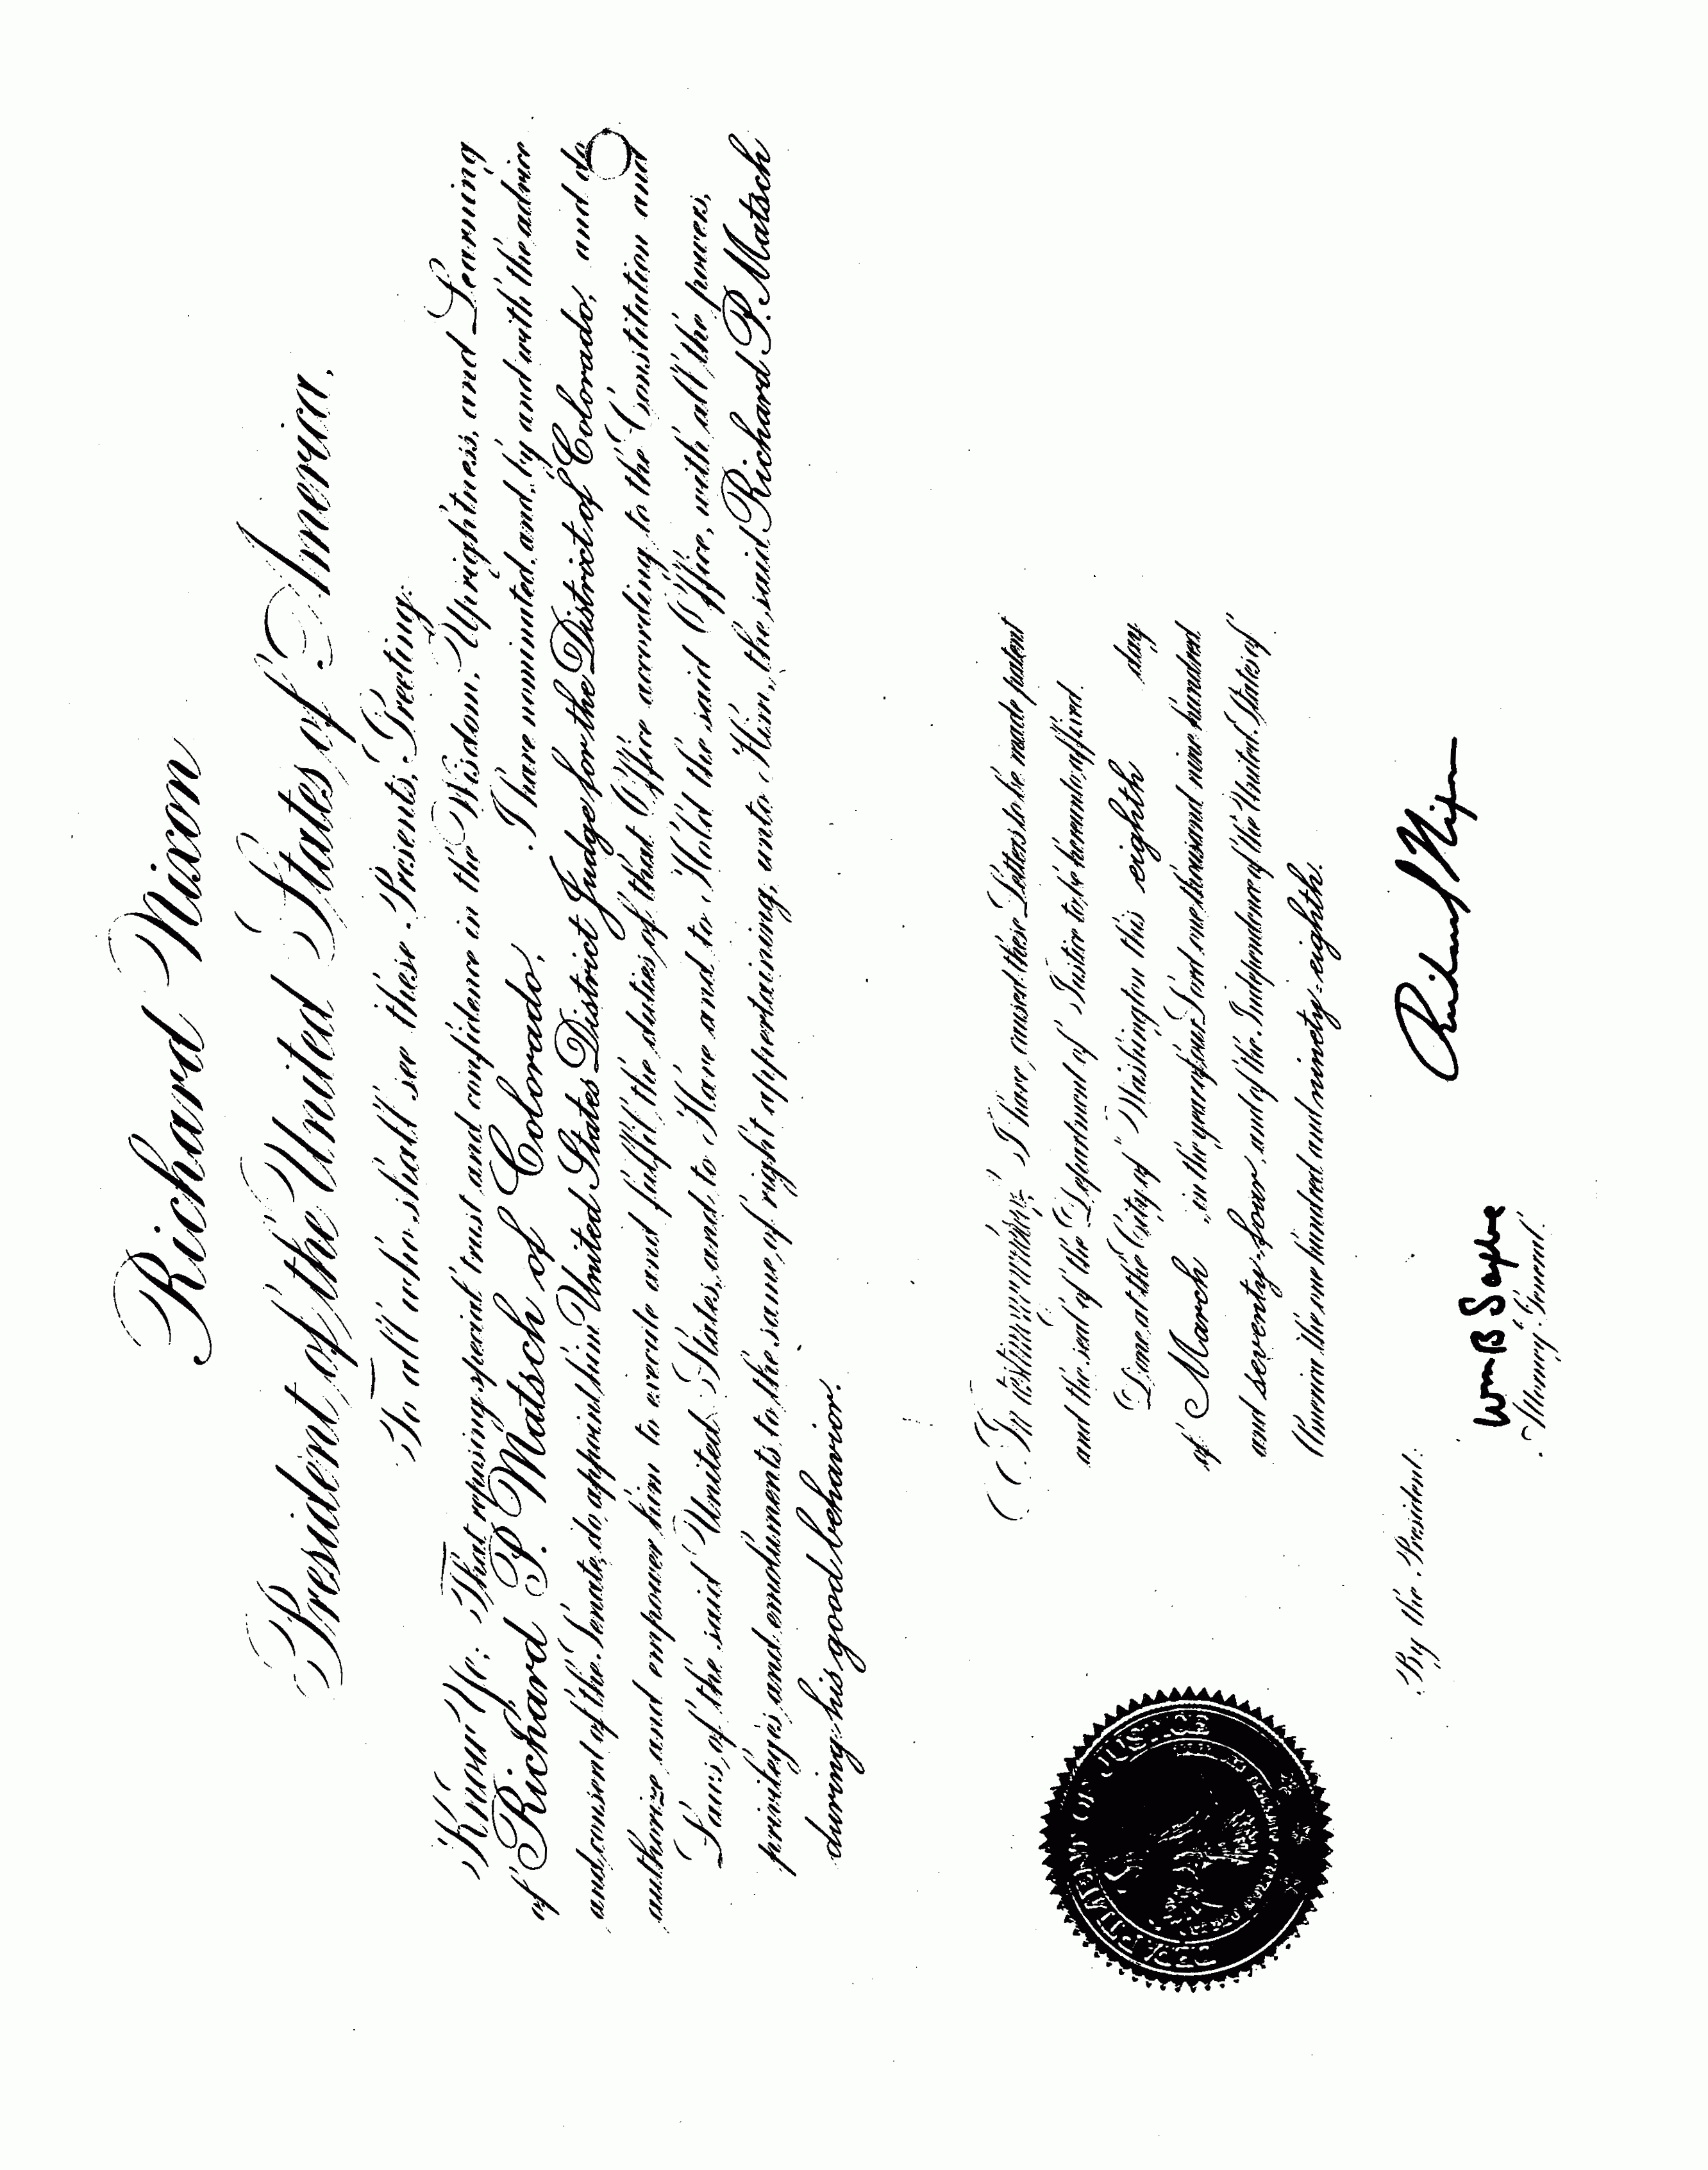 Richard Nixon
President of the United States of America.
To all who shall see these Presents, Greeting:
Know Ye; That reposing special trust and confidence in the Wisdom, Uprightness, and Learning
of Richard P. Matsch of Colorado, I have nominated, and, by and with the advice
and consent of the Senate, do appoint him United States District Judge for the District of Colorado, and do
authorize and empower him to execute and fulfil the duties of that Office according to the Constitution and
Laws of the said United States, and to Have and to Hold the said Office, with all the powers,
privileges and emoluments to the same of right appertaining, unto Him, the said Richard P. Matsch
during his good behavior.
In testimony whereof, I have caused these Letters to be made patent
and the seal of the Department of Justice to be hereunto affixed.
Done at the City of Washington this eighth day
of March, in the year of our Lord one thousand nine hundred
and seventy-four, and of the Independence of the United States of
America the one hundred and ninety-eighth.
Richard Nixon
By the President:
Wm B Saxbe
Attorney General.
DEPARTMENT OF JUSTICE